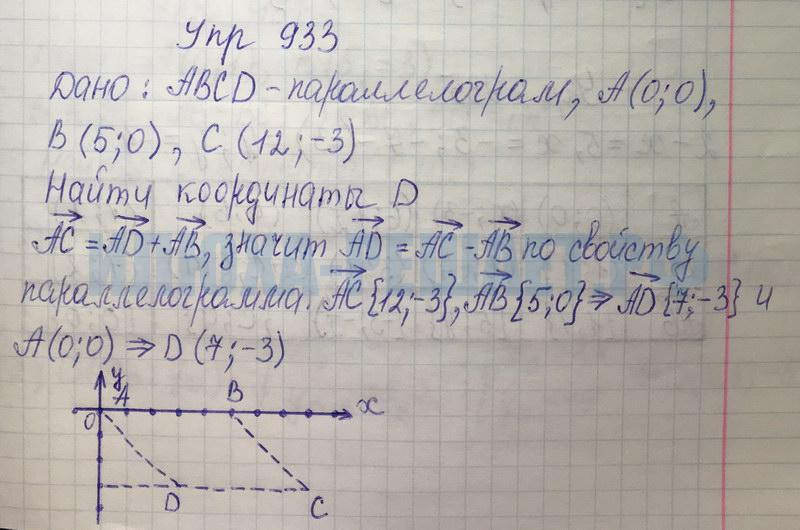 Упр 933
Дано: ABCD - параллелограм, A(0;0),
B(5;0), C(12;-3)
Найти координаты D
AC = AD + AB, значит AD = AC - AB по свойству
параллелограмма. AC{12;-3}, AB{5;0} ⇒ AD{7;-3} и
A(0;0) ⇒ D(7;-3)
y
A B x
O
D C